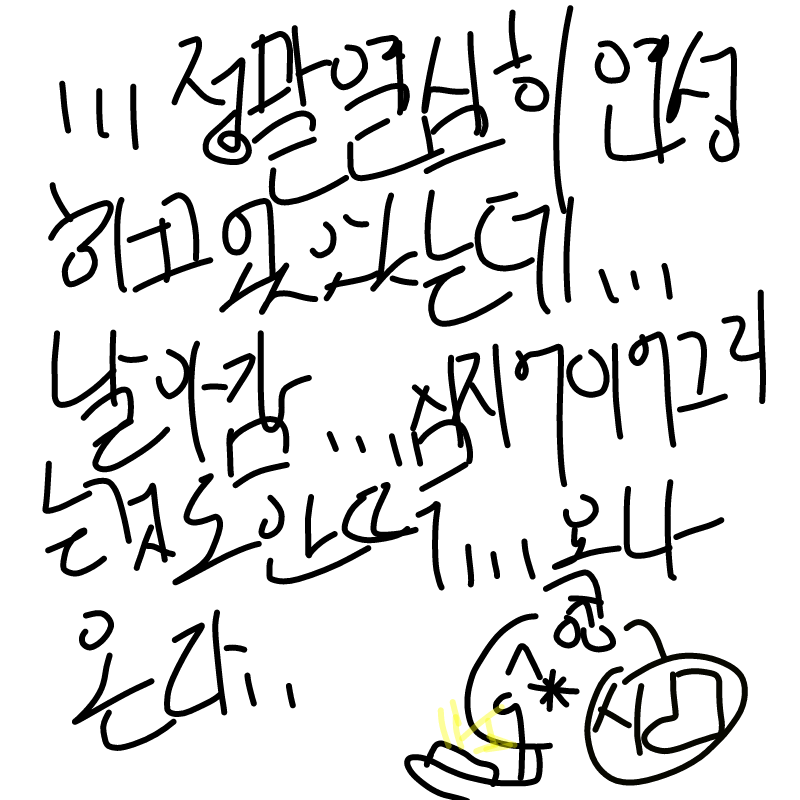 ... 정말열심히 연성
하고있었는데...
날아감... 심지어이어그리
는법도안떠... 오나
온라..